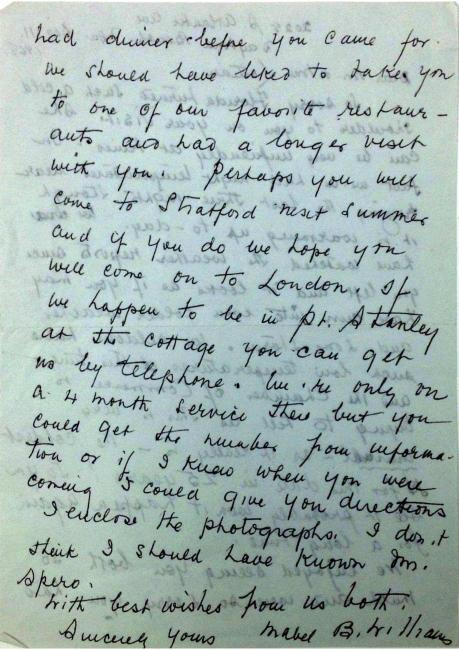 had dinner before you came for
we should have liked to take you
to one of our favorite restaur-
ants and had a longer visit
with you. Perhaps you will
come to Stratford next summer
and if you do we hope you
will come on to London. If
we happen to be in Pt. Stanley
at the cottage you can get
us by telephone. We're only on
a 4 month service there but you
could get the number from informa-
tion or if I knew when you were
coming I could give you directions
I enclose the photographs. I don't
think I should have known Dr.
Spero.
With best wishes from us both.
Sincerely yours Mabel B. Williams